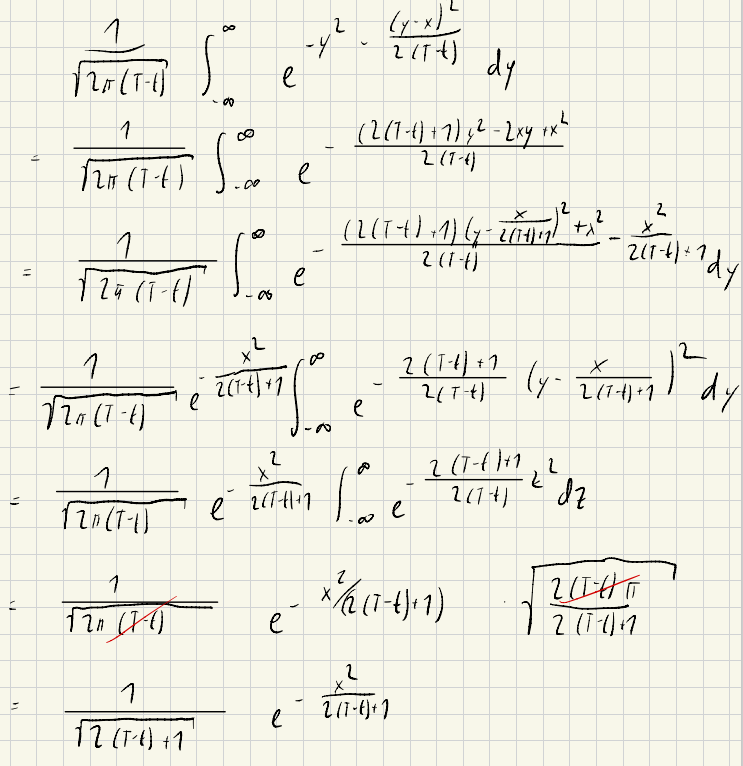 \frac{1}{\sqrt{2\pi(T-t)}} \int_{-\infty}^{\infty} e^{-y^2 - \frac{(y-x)^2}{2(T-t)}} dy
= \frac{1}{\sqrt{2\pi(T-t)}} \int_{-\infty}^{\infty} e^{-\frac{(2(T-t)+1)y^2 - 2xy + x^2}{2(T-t)}}
= \frac{1}{\sqrt{2\pi(T-t)}} \int_{-\infty}^{\infty} e^{-\frac{(2(T-t)+1)(y - \frac{x}{2(T-t)+1})^2 + x^2}{2(T-t)} - \frac{x^2}{2(T-t)+1}} dy
= \frac{1}{\sqrt{2\pi(T-t)}} e^{-\frac{x^2}{2(T-t)+1}} \int_{-\infty}^{\infty} e^{-\frac{2(T-t)+1}{2(T-t)} (y - \frac{x}{2(T-t)+1})^2} dy
= \frac{1}{\sqrt{2\pi(T-t)}} e^{-\frac{x^2}{2(T-t)+1}} \int_{-\infty}^{\infty} e^{-\frac{2(T-t)+1}{2(T-t)} z^2} dz
= \frac{1}{\sqrt{2\pi(T-t)}} e^{-x^2/(2(T-t)+1)} \cdot \sqrt{\frac{2(T-t)\pi}{2(T-t)+1}}
= \frac{1}{\sqrt{2(T-t)+1}} e^{-\frac{x^2}{2(T-t)+1}}